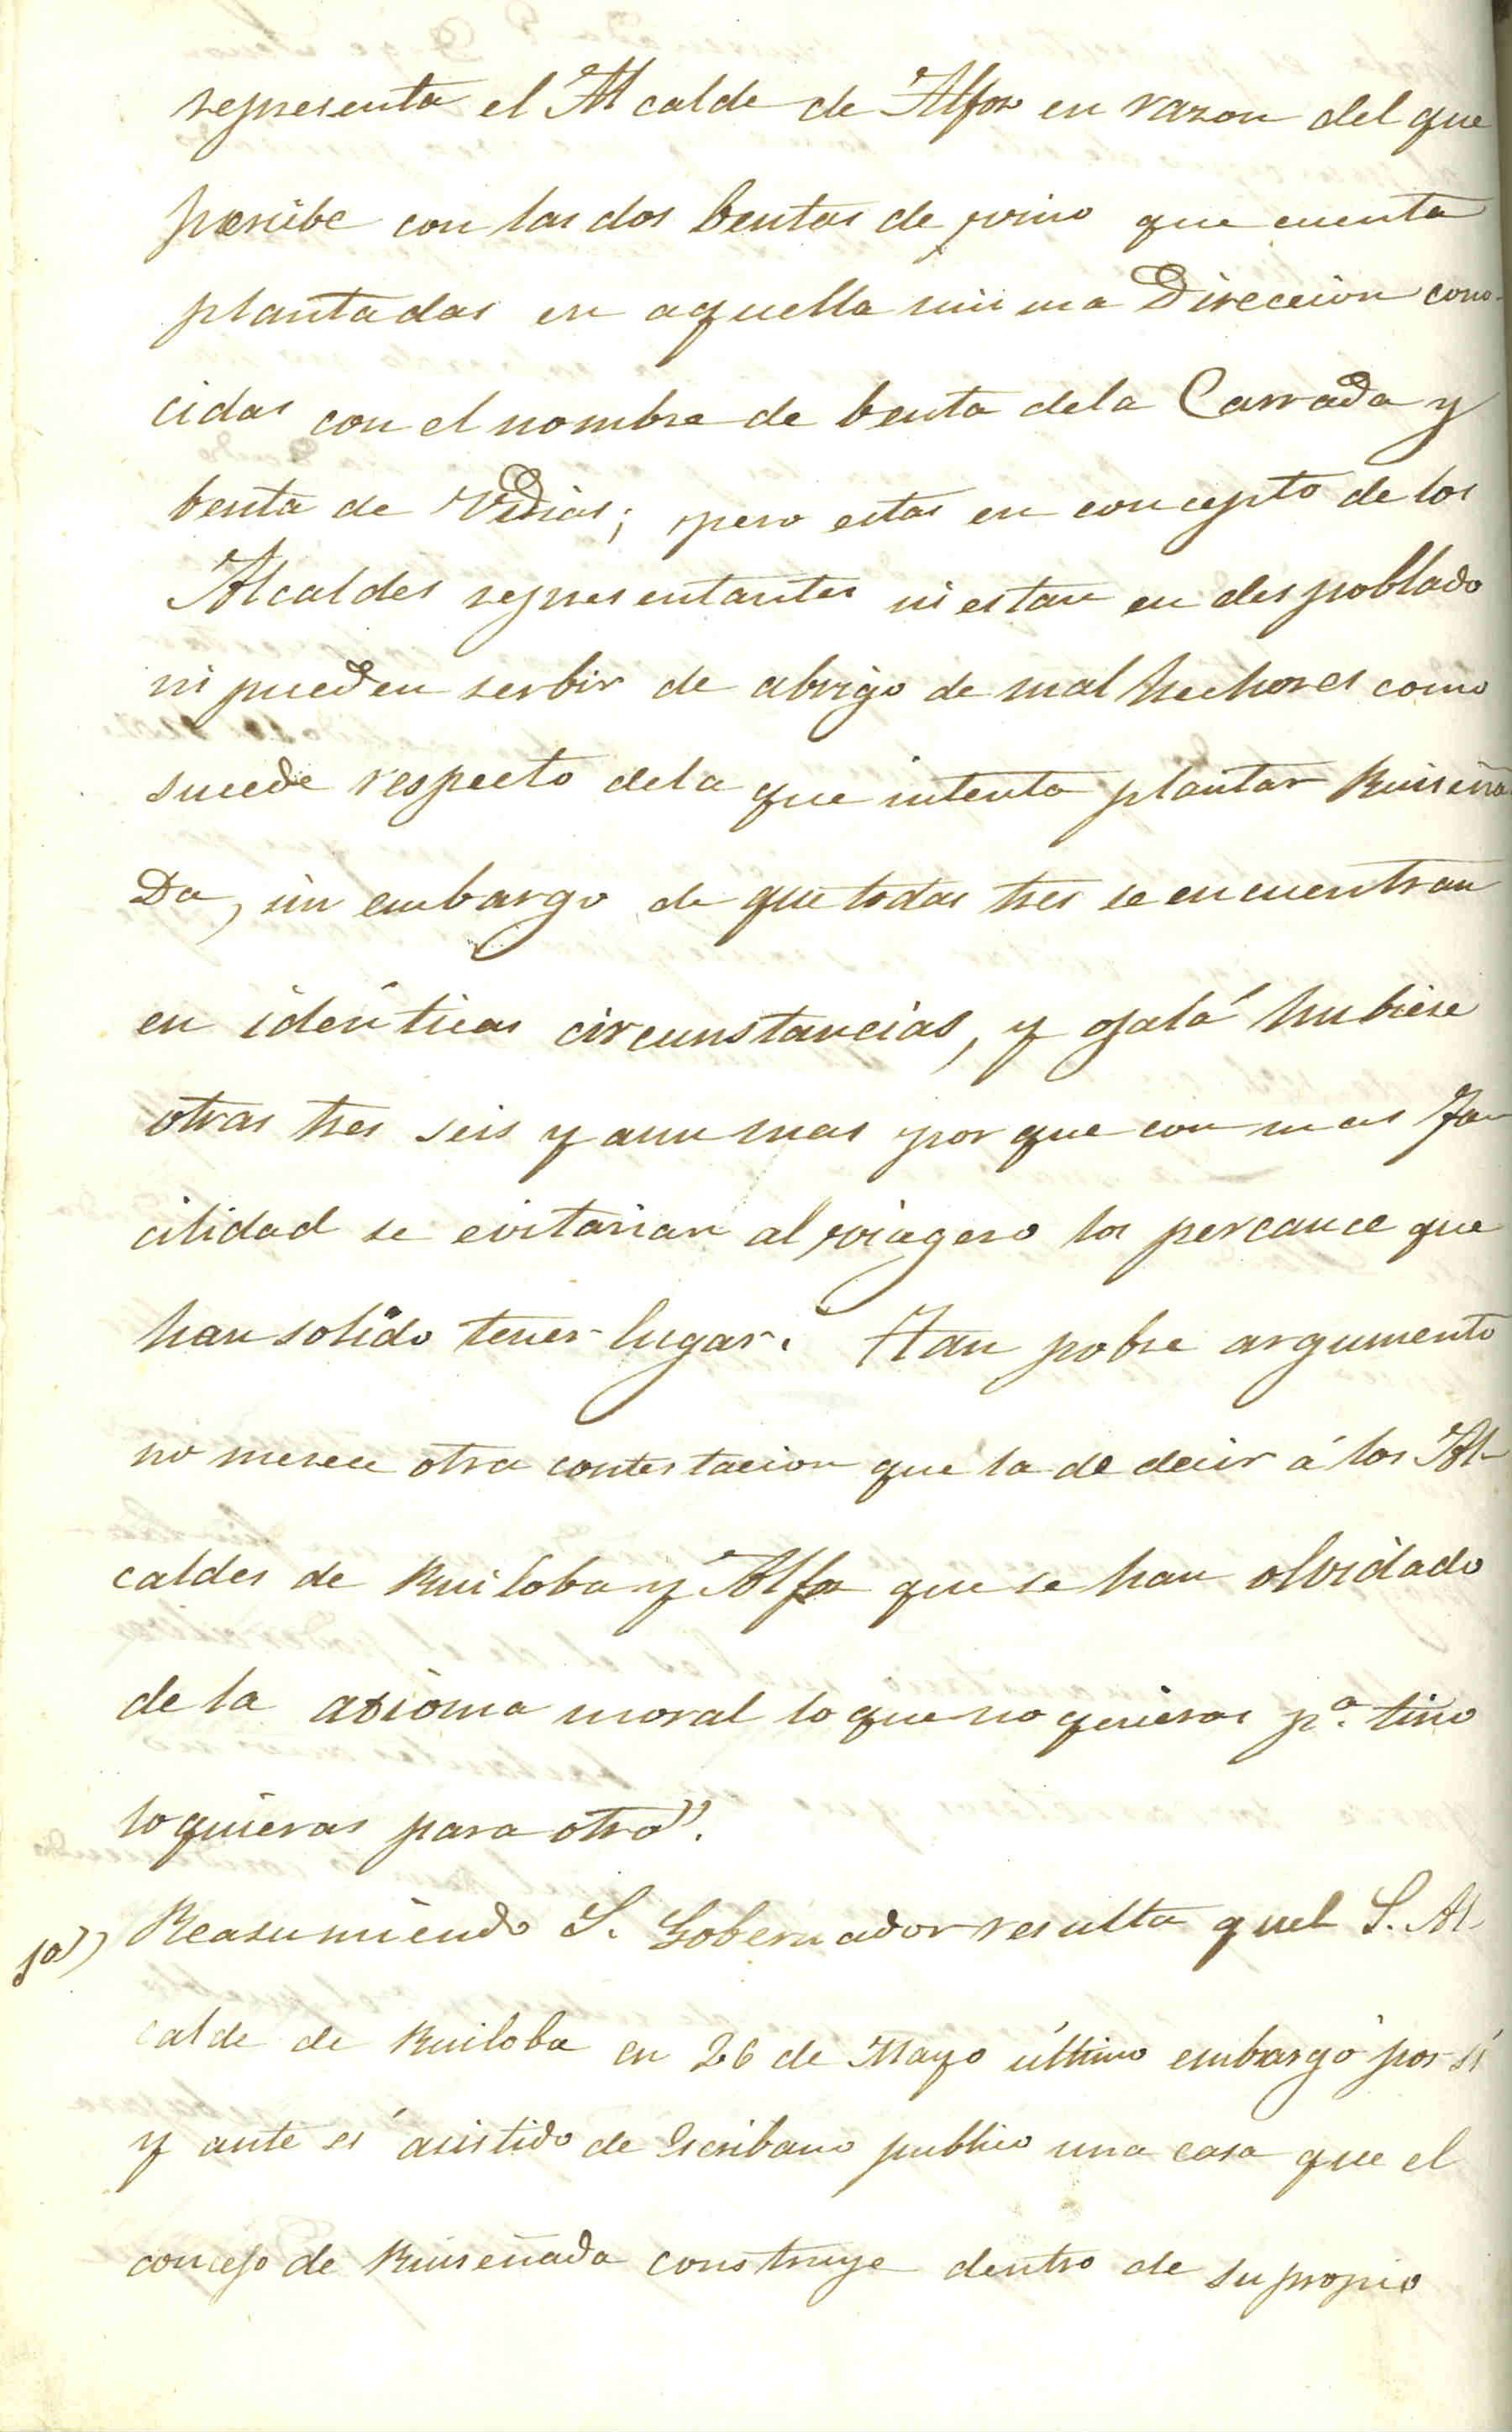 representa el Alcalde de Alfoz en razon del que
percibe con las dos bentas de vino que cuenta
plantadas en aquella misma Direccion cono-
cidas con el nombre de benta dela Carrada y
benta de Vidias; pero estas en concepto de los
Alcaldes representantes ni estan en despoblado
ni pueden serbir de abrigo de mal hechores como
sucede respecto dela que intenta plantar Ruiseña
Da, sin embargo de que todas tres se encuentran
en idénticas circunstancias, y ojalá hubiese
otras tres seis y aun mas por que con mas fa
cilidad se evitarian al viagero los percance que
han solido tener lugar. Tan pobre argumento
no merece otra contestacion que la de decir á los Al-
caldes de Ruiloba y Alfoz que se han olvidado
de la axioma moral lo que no quieras pª. tino
lo quieras para otro".
10") Reasumiendo S. Gobernador resulta quel S. Al-
calde de Ruiloba en 26 de Mayo último embargó por sí
y ante sí asistido de Escribano publico una casa que el
concejo de Ruiseñada construye dentro de su propio